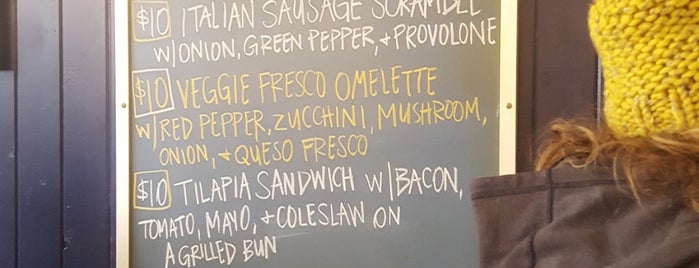 $10 ITALIAN SAUSAGE SCRAMBLE
W/ONION, GREEN PEPPER, + PROVOLONE
$10 VEGGIE FRESCO OMELETTE
W/RED PEPPER, ZUCCHINI, MUSHROOM,
ONION, + QUESO FRESCO
$10 TILAPIA SANDWICH W/BACON,
TOMATO, MAYO, + COLESLAW ON
A GRILLED BUN